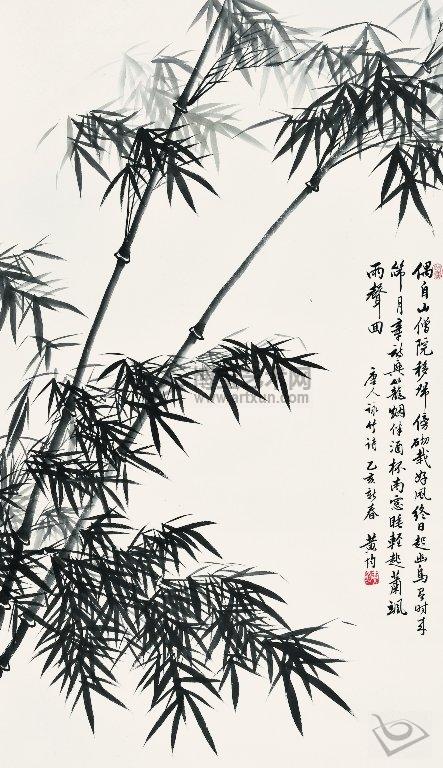 偶自山僧院移归傍砌栽好风终日起幽鸟有时来
筛月牵诗兴笼烟伴酒杯南窗睡轻起萧飒
雨聲回
唐人詠竹诗 乙亥新春 黄均
www.artxun.com